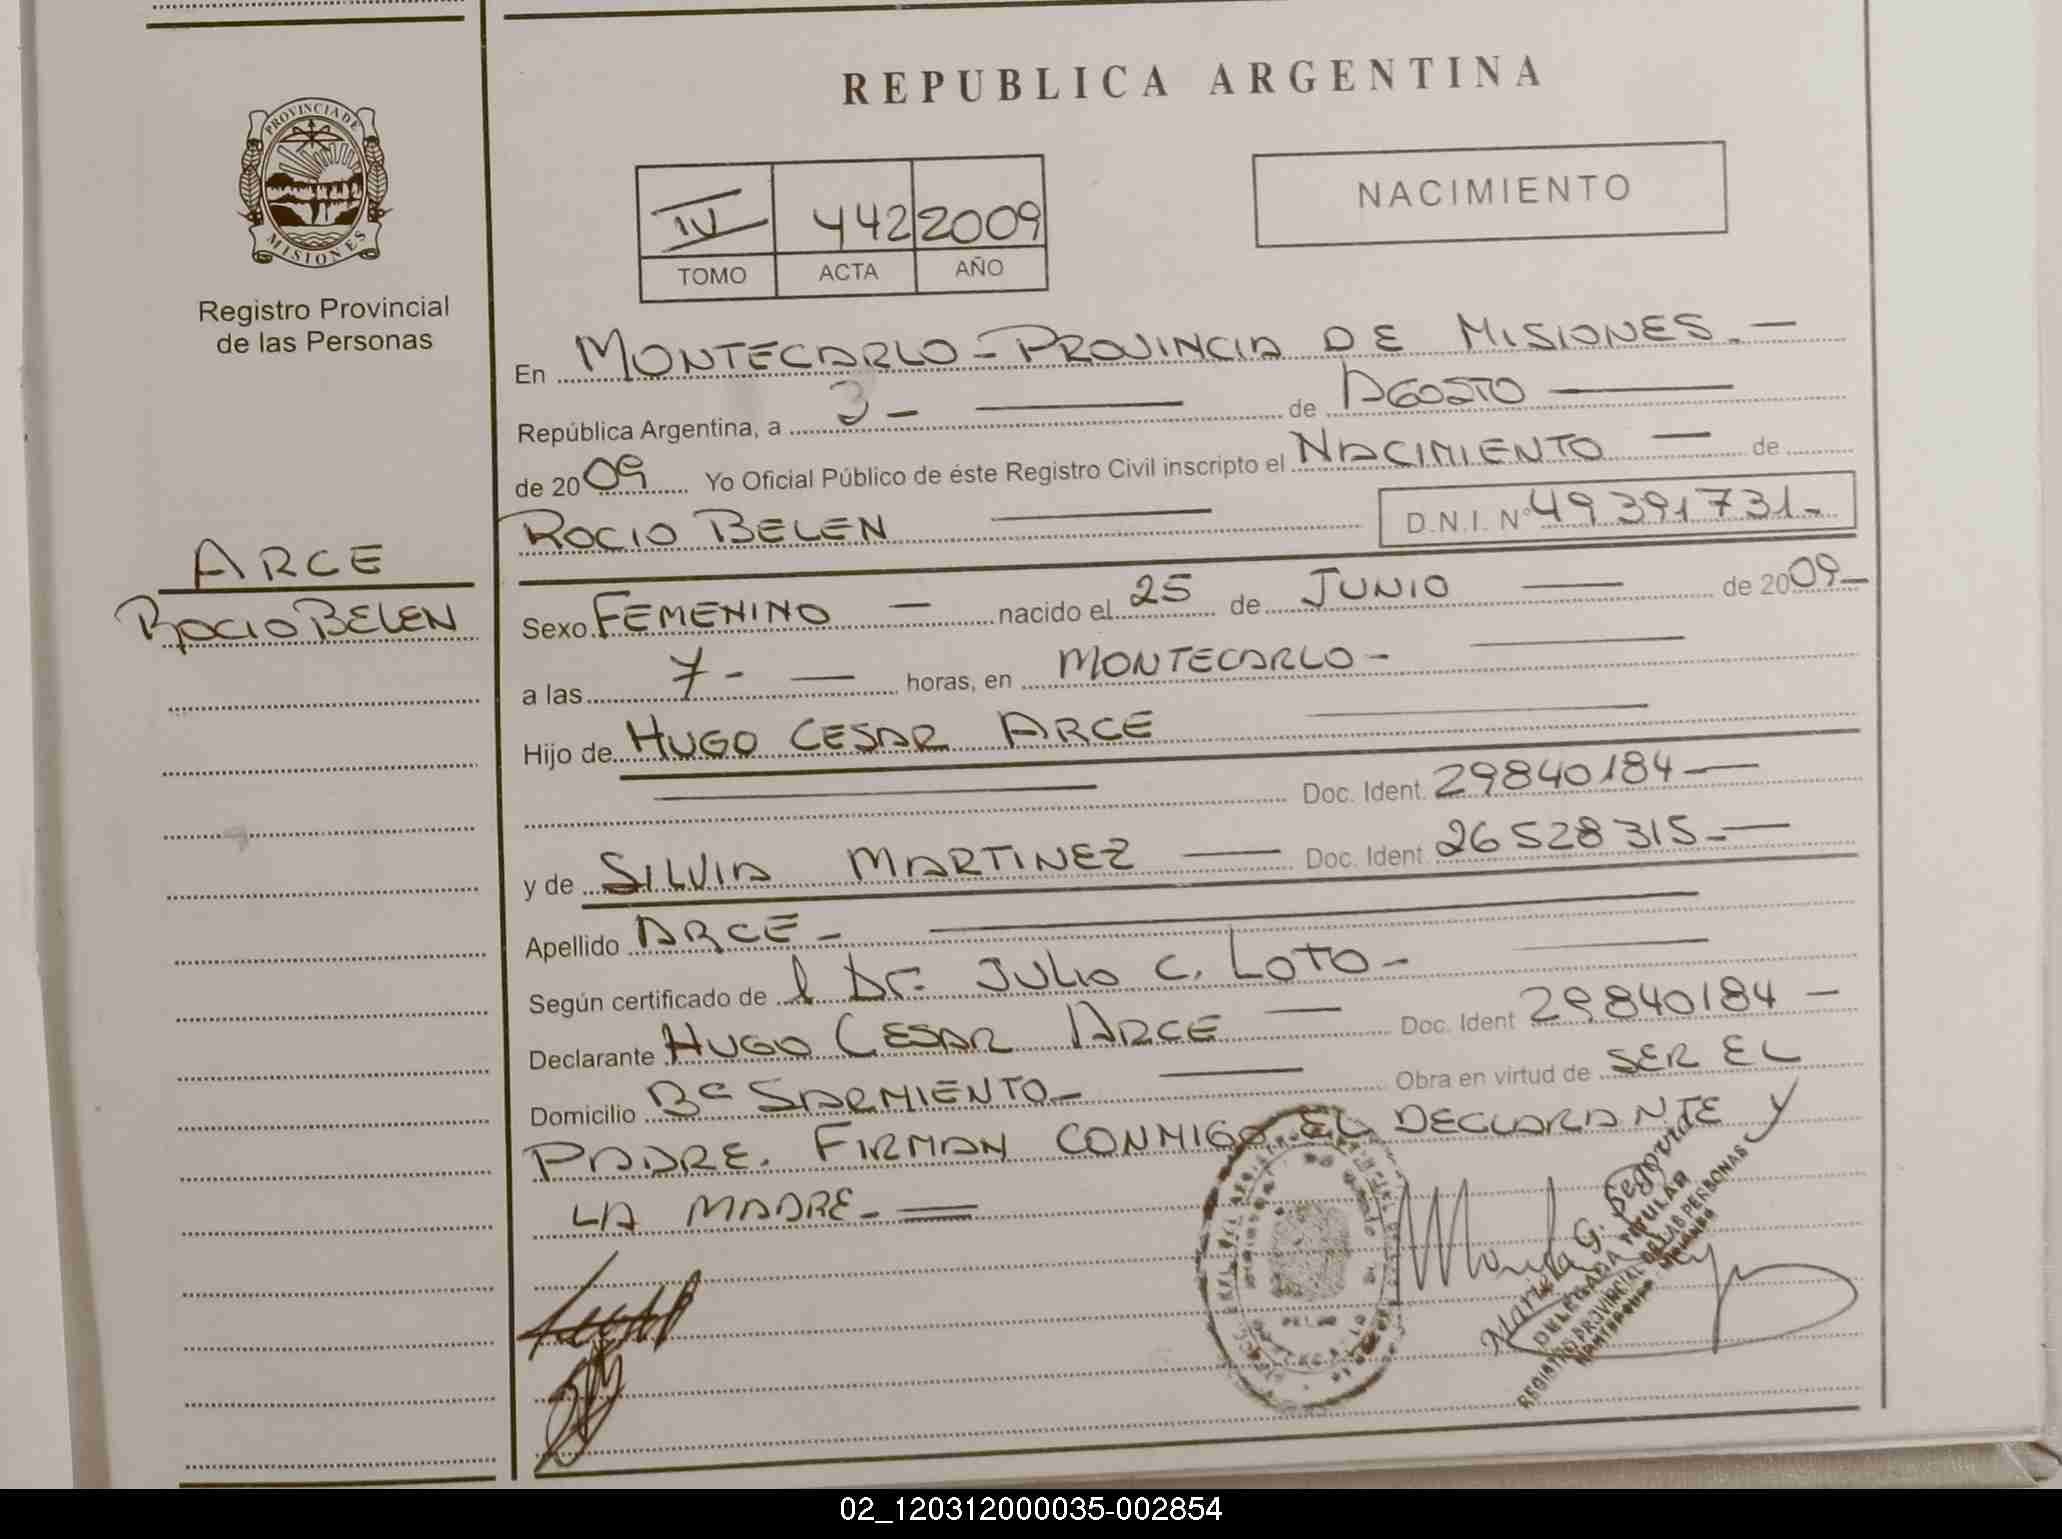 REPUBLICA ARGENTINA
PROVINCIA DE
MISIONES
Registro Provincial
de las Personas
IV 442 2009
TOMO ACTA AÑO
NACIMIENTO
ARCE
ROCIO BELEN
En MONTECARLO - PROVINCIA DE MISIONES. —
República Argentina, a 3 - — de AGOSTO —
de 2009 Yo Oficial Público de éste Registro Civil inscripto el NACIMIENTO — de
ROCIO BELEN — D.N.I. Nº 49391731-
Sexo FEMENINO — nacido el 25 de JUNIO — de 2009-
a las 7 - — horas, en MONTECARLO - —
Hijo de HUGO CESAR ARCE —
— Doc. Ident. 29840184 —
y de SILVIA MARTINEZ — Doc. Ident. 26528315 - —
Apellido ARCE - —
Según certificado de l Dr. JULIO C. LOTO - —
Declarante HUGO CESAR ARCE — Doc. Ident 29840184 —
Domicilio Bº SARMIENTO - — Obra en virtud de SER EL
PADRE. FIRMAN CONMIGO EL DECLARANTE Y
LA MADRE - —
G. Segovia
DELEGADA TITULAR
REGISTRO PROVINCIAL DE LAS PERSONAS
02_120312000035-002854